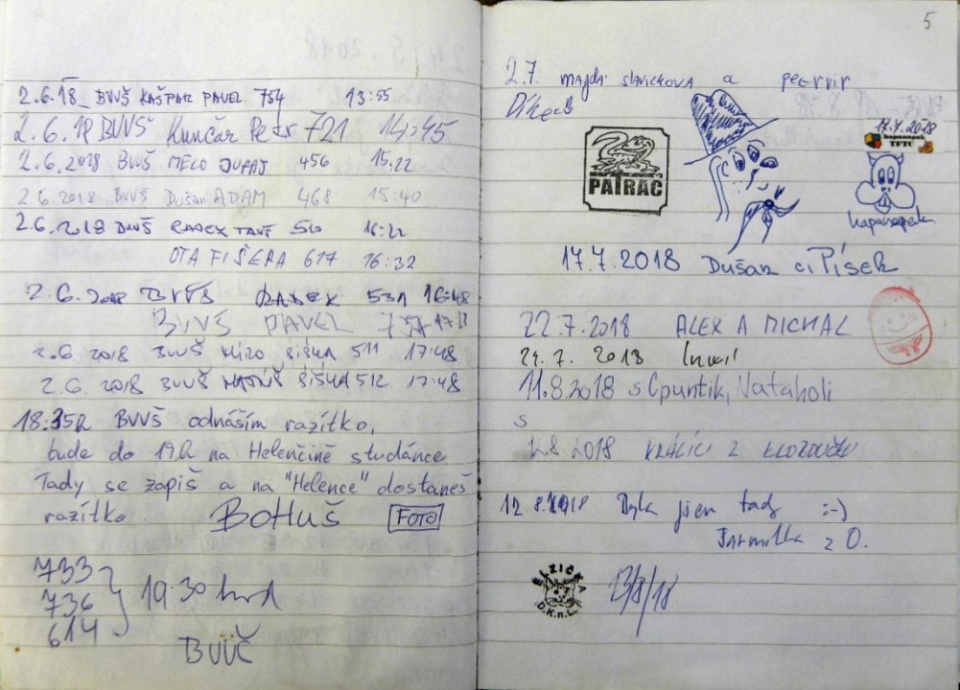 2.6.18_ BVVŠ KAŠPAR PAVEL 754 13:55
2.6.18 BVVŠ Kunčar Petr 721 14:45
2.6.2018 BVVŠ MELO JURAJ 456 15:22
2.6.2018 BVVŠ Dušan ADAM 468 15:40
2.6.2018 BVVŠ 16:22
OTA FIŠERA 617 16:32
2.6.2018 BVVŠ RADEK 531 16:48
BVVŠ PAVEL
2.6 2018 BVVŠ MIŠO ŠIŠKA 511 17:48
2.6 2018 BVVŠ MATÚŠ ŠIŠKA 512 17:48
18:35h BVVŠ odnáším razítko,
bude do 19h na Helenčině studánce
Tady se zapiš a na "Helence" dostaneš
razítko BOHUŠ FOTO
733
736
614
19:30 hod
BVVČ
5
2.7. majda slavickova a petrvir
Díkec
PATRAC
17.7.2018
TFTC
hapanapek
17.7.2018 Dušan a Písek
22.7.2018 ALEX A MICHAL
24.7. 2018
11.8.2018 s Cpuntik, Nataholi
s
2018 KRÁLÍCI Z
12 8.2018 Byla jsem tady :-)
Jarmilka z O.
ELZIČKA
D.K.n.L.
13/8/18